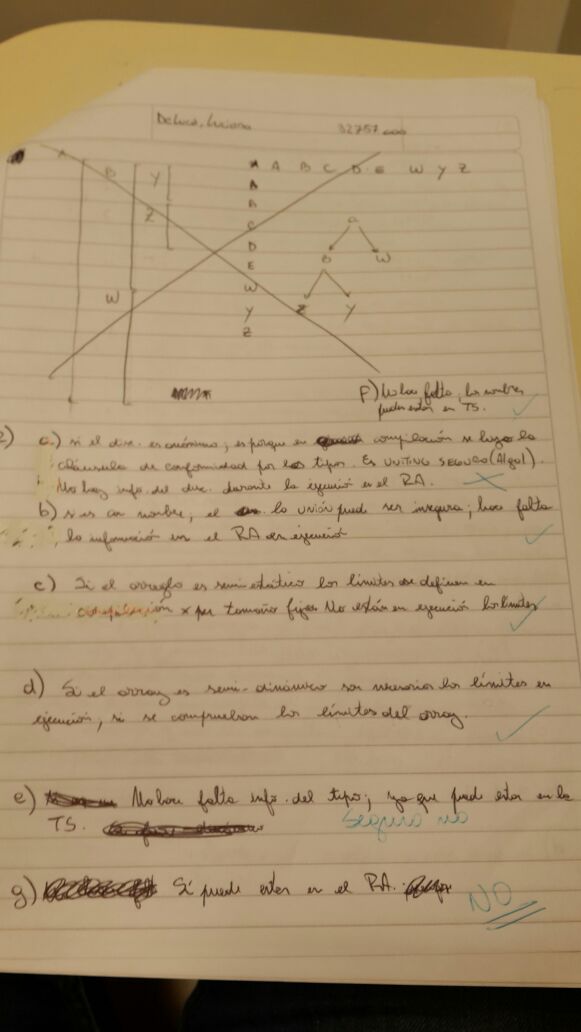 De Luca, Luciana 32757.000
A B Y Z W
A B C D E W Y Z
A
B
C
D
E
W
Y
Z
a
B W
Z Y
F) No hace falta, los nombres
pueden estar en TS.
2) a) si el disc. es anónimo, es porque en compilación se hizo la
cláusula de conformidad por los tipos. Es UNITIVO SEGURO (Algol).
No hay info. del disc. durante la ejecución en el RA.
b) si es con nombre, el la unión puede ser insegura; hace falta
la información en el RA en ejecución
c) Si el arreglo es semiestático los límites se definen en
compilación x ser tamaño fijo. No están en ejecución los límites
d) Si el array es semi-dinámico son necesarios los límites en
ejecución, si se comprueban los límites del array.
e) No hace falta info. del tipo; ya que puede estar en la
TS. Seguro no
g) Si puede estar en el RA. NO